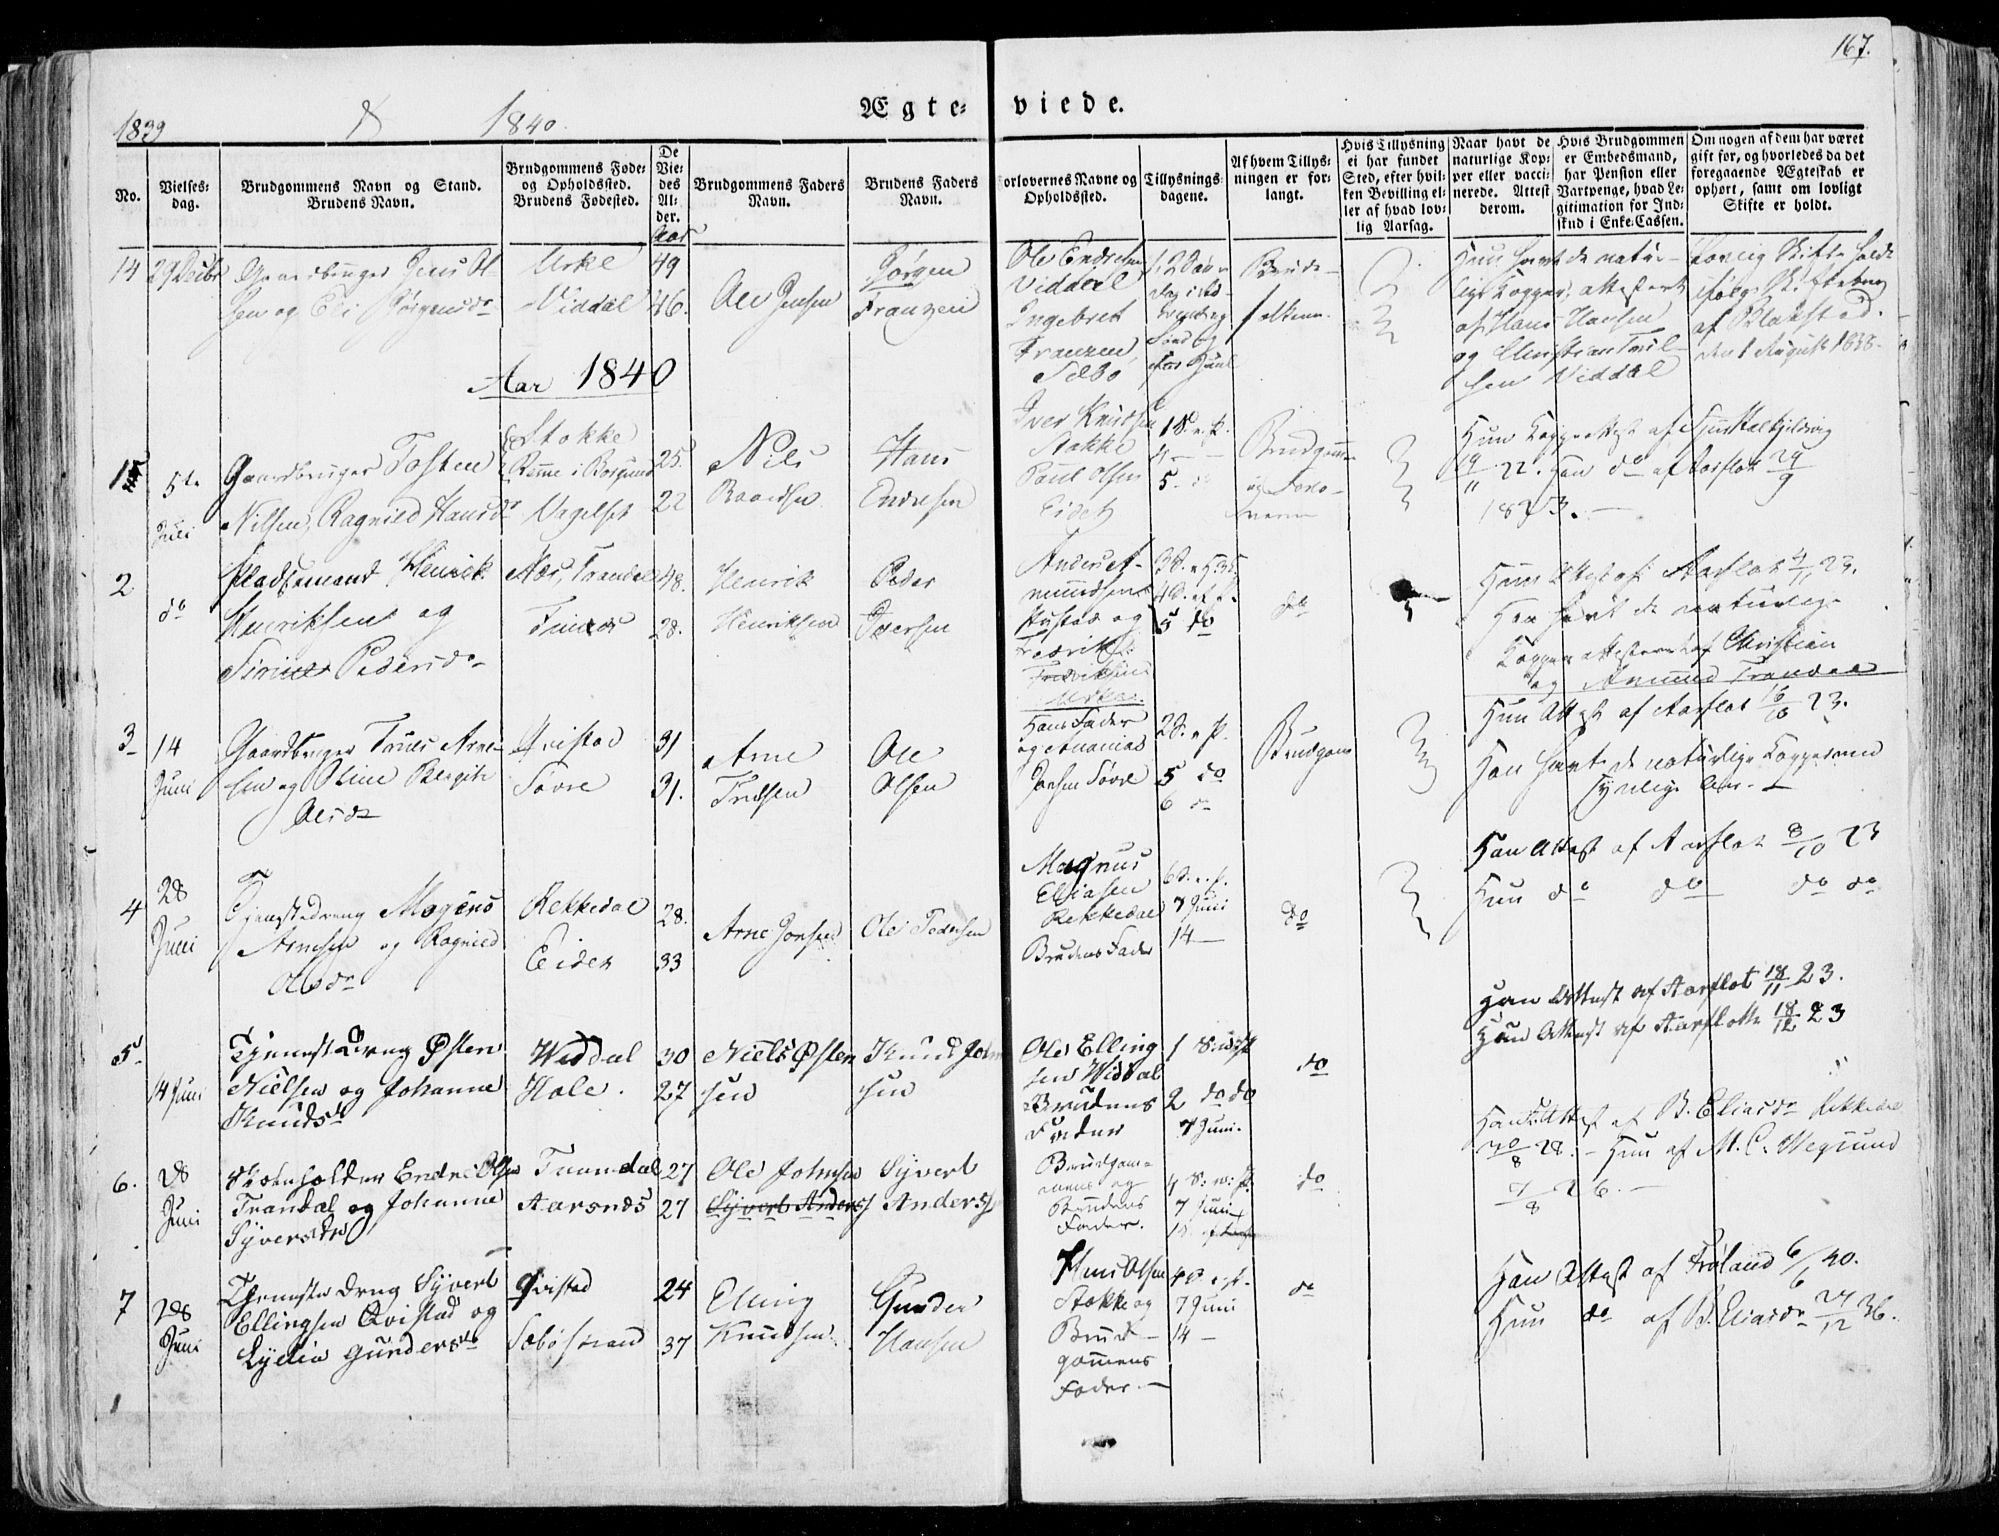 167.
1839 & 1840.
Ægte- viede.
No.
Vielses-
dag.
Brudgommens Navn og Stand.
Brudens Navn.
Brudgommens Føde-
og Opholdssted.
Brudens Fødested.
De
Vie-
des
Al-
der.
Aar
Brudgommens Faders
Navn.
Brudens Faders
Navn.
orlovernes Navne og
Opholdssted.
Tillysnings-
dagene.
Af hvem Tillys-
ningen er for-
langt.
Hvis Tillysning
ei har fundet
Sted, efter hvil-
ken Bevilling el-
ler af hvad lov-
lig Aarsag.
Naar havt de
naturlige Kop-
per eller vacci-
nerede. Attest
derom.
Hvis Brudgommen
er Embedsmand,
har Pension eller
Vartpenge, hvad Le-
gitimation for Ind-
skud i Enke-Cassen.
Om nogen af dem har været
gift før, og hvorledes da det
foregaaende Ægteskab er
ophørt, samt om lovligt
Skifte er holdt.
14 29 Decbr Gaardbruger Jens Ol-
sen og Eli Jørgensdr
Urke
Viddal
49
46.
Ole Jensen
Jørgen
Franzen
Ole Endresen
Viddal
Ingebret
Franzen
Sæbø
Brude-
folkene
Han havt de natur-
lige Kopper, attesteret
af Hans Hansen
og Christian Truls-
sen Viddal
Lovlig Skifte holdt
ifølge Skiftebrev
af Blakstad.
den 1 August 1838.
Aar 1840
1 5te
Juli
Gaardbruger Tosten
Nilsen, Ragnild Hansdr
Stokke
Reme i Borgund
Vagelset
25.
22
Nils
Baardsen
Hans
Endresen
Iver Knudsen
Stokke
Paul Olsen
Eidet
18. e. p.
4 — -
5 - do
Brudgom
Hun Koppeattest af
19/11 22. Han do af Aarflot 29/9
1823. —
2
do
Pladsemand Henrik
Henriksen og
Sirine Pedersdr
Næs, Trandal
48.
28.
Henrik
Henriksen
Peder
Iversen
Anders A-
mundsen
Rustad og
Fredrik
Fredriksen
Urke
5 do
do
Hun Attest af Aarflot 4/11 23.
Han havt de naturlige
Kopper attesteret af Christian
og Amund Trandal
3 14
Juni
Gaardbruger Truls Arne-
sen og Oline Bergite
Olsdr
Qvistad
Sævre
31
31.
Arne
Trulsen
Ole
Olsen
Hans Fader
og Ananias
Jonsen Søvre
2 S. e. p.
5 do
6 do
Brudgom
Hun Attest af Aarflot 16/10 23.
Han havt de naturlige Kopper med
synlige Ar. —
4 28
Juni
Tjenestedreng Mogens
Arnesen og Ragnild
Olsdr
Rekkedal
Eidet
28.
33
Arne Jonsen
Ole Pedersen
Magnus
Eliasen
Rekkedal
Brudens Fader
6 S. e. p.
7 Juni
14 —
do
Han Attest af Aarflot 8/10 23
Hun do do do do
5
14 Juni
Tjenestedreng Østen
Nielsen og Johanne
Knudsdr
Widdal
Hole.
30
27
Niels Østen
sen
Knud John
sen
Ole Elling
sen Widdal
Brudens
Fader
1 S. e. p
2 do do
7 Juni.
do
Han Attest af Aarflot 18/11 23.
Hun Attest af Aarflotte 18/12 23
6. 28
Juni
Skoleholder Endre Olsen
Trandal og Johanne
Syversdr
Trandal
Aarsnes
27
27
Ole Johnsen
Syvert Anders
Syvert
Anderss
Brudgom-
mens og
Brudens
Fader.
4 S. e. p.
7 Juni
do
Han Attest af B. Eliasdr Rekkedal
20/8 28. - Hun af M. C. Wegsund
7/8 26. —
7 28
Juni
Tjenestedreng Syvert
Ellingsen Qvistad og
Lydia Gundersdr
Qvistad
Sæbøstrand
24
37
Elling
Knudsen
Gunder
Hansen
Hans Olsen
Stokke og
Brud-
gommens
Fader. —
4 S. e. p.
7 Juni
14 —
do
Han Attest af Frøland 6/6 40.
Hun do af B. Eliasdr 27/12 36.